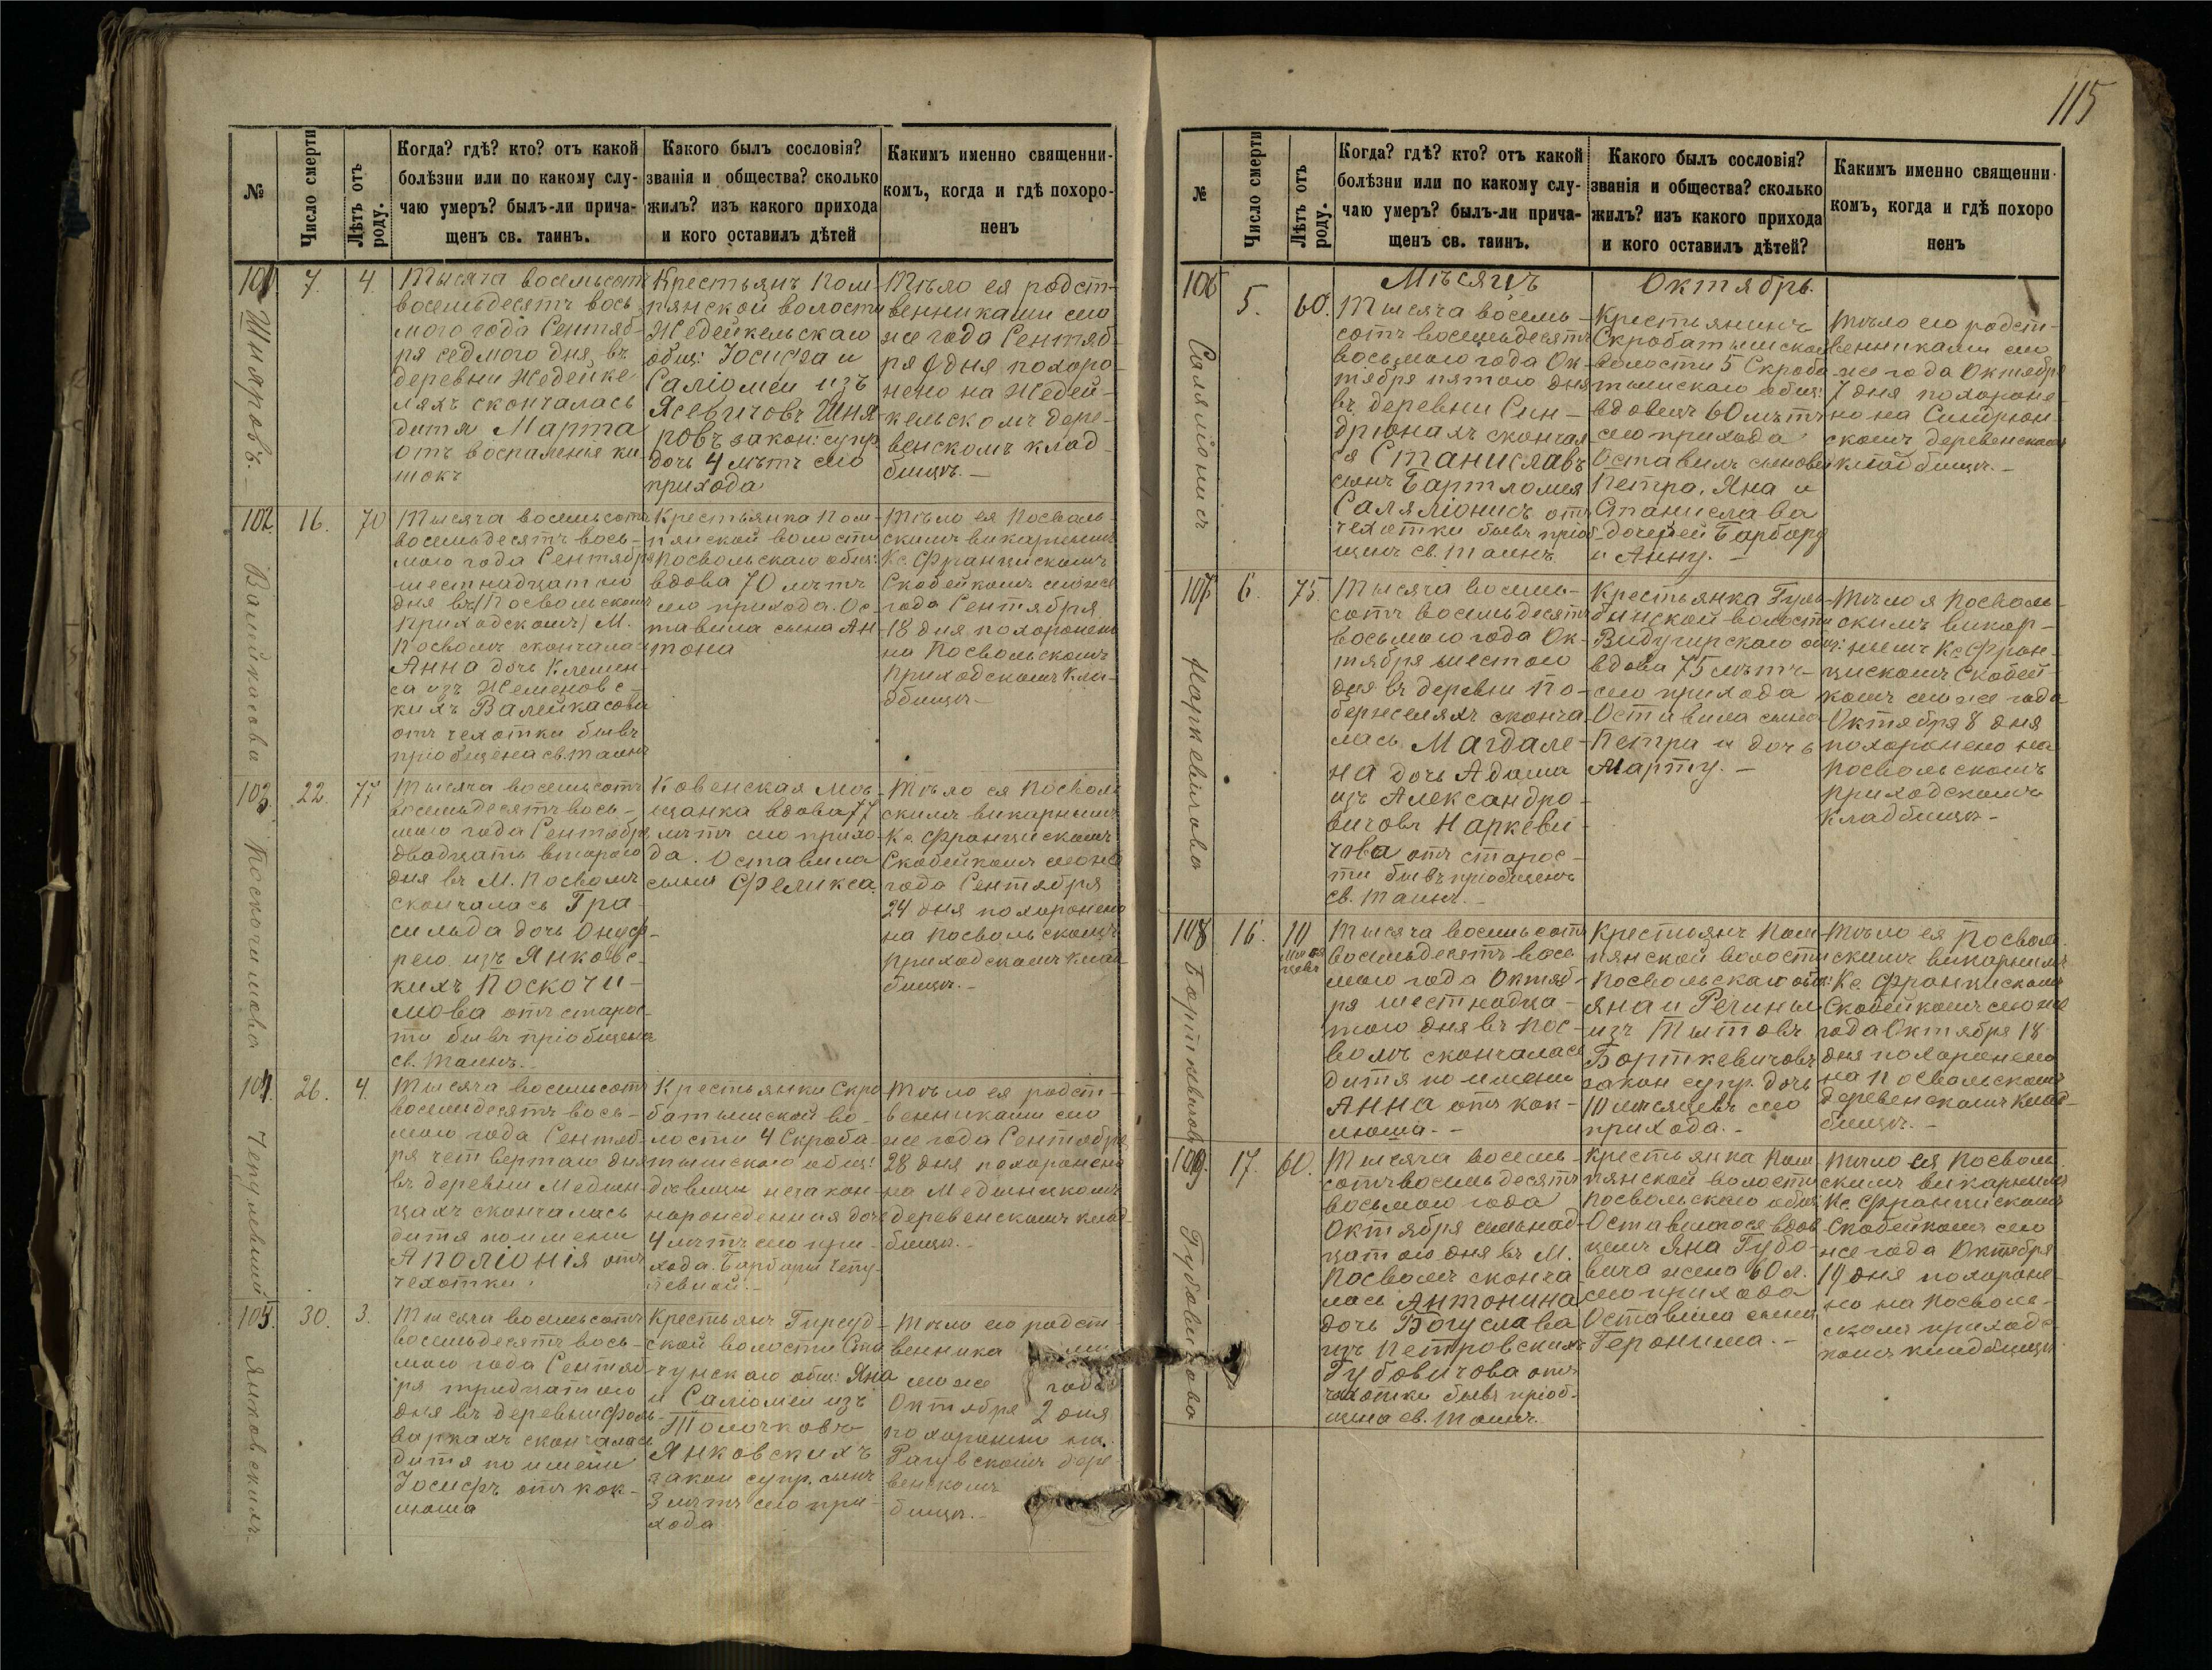 115
№
Число смерти
Лѣтъ отъ роду.
Когда? гдѣ? кто? отъ какой
болѣзни или по какому слу-
чаю умеръ? былъ-ли прича-
щенъ св. таинъ.
Какого былъ сословія?
званія и общества? сколько
жилъ? изъ какого прихода
и кого оставилъ дѣтей
Какимъ именно священни-
комъ, когда и гдѣ похоро-
ненъ
101
Шняровъ
7.
4.
Тысяча восемьсотъ
восемьдесятъ вось
мого года Сентяб-
ря седмого дня въ
деревни Жедейке
ляхъ скончалась
дитя Марта
отъ воспаленія ки
шокъ
Крестьянъ Пом-
пянской волости
Жедейкельскаго
общ: Іосифа и
Саліомеи изъ
Ясевичовъ Шня
ровъ закон: супр.
дочь 4 лѣтъ сего
прихода
Тѣло ея родст-
венниками сего
же года Сентяб-
ря 9 дня похоро-
нено на Жедей-
кельскомъ дере-
венскомъ клад-
бищѣ. —
102.
Валейкасова
16.
70
Тысяча восемьсотъ
восемьдесятъ вось-
мого года Сентября
шестнадцатого
дня въ Посвольскомъ
приходскомъ М.
Посволѣ скончалась
Анна дочь Клемен-
са изъ Жеменовс-
кихъ Валейкасова
отъ чехотки бывъ
пріобщена св. таинъ
Крестьянка Пом-
пянской волости
Посвольскаго общ:
вдова 70 лѣтъ
сего прихода. Ос-
тавила сына Ан
тона
Тѣло ея Посволь-
скимъ викарнымъ
Кс. Францискомъ
Скобейкомъ сего же
года Сентября
18 дня похоронено
на Посвольскомъ
приходскомъ кла-
дбищѣ —
103.
Поскочимова
22.
77
Тысяча восемьсотъ
восемьдесятъ вось-
мого года Сентября
двадцать второго
дня въ М. Посволѣ
скончалась Гра-
сильда дочь Онуф-
рего изъ Янковс-
кихъ Поскочи-
мова отъ старос-
ти бывъ пріобщена
св. Таинъ. —
Ковенская Мѣ-
щанка вдова 77
лѣтъ сего прихо-
да. Оставила
сына Феликса.
Тѣло ея Посволь
скимъ викарнымъ
Кс. Францискомъ
Скобейкомъ сего же
года Сентября
24 дня похоронено
на Посвольскомъ
приходскомъ клад
бищѣ. —
104.
26.
4.
Тысяча восемьсотъ
восемьдесятъ вось-
мого года Сентяб-
ря четвертаго дня
въ деревни Медин-
цахъ скончалась
дитя по имени
Аполіонія отъ
чехотки.
Крестьянки Скро
батышской во-
лости 4 Скроба-
тышскаго общ:
дѣвицы незакон-
норожденная дочь
4 лѣтъ сего при-
хода. Барбары Чепу-
левной. —
Тѣло ея родст-
венниками сего
же года Сентября
28 дня похоронено
на Мединцкомъ
деревенскомъ клад-
бищѣ. —
105.
Янковскихъ
30.
3.
Тысяча восемьсотъ
восемьдесятъ вось-
мого года Сентяб
ря тридцатого
дня въ деревни Фоль-
варкахъ скончалась
дитя по имени
Іосифъ отъ кок-
люша
Крестьянъ Гируд-
ской волости Ста
чунскаго общ: Яна
и Саліомеи изъ
Толочковъ
Янковскихъ
закон супр. сынъ
3 лѣтъ сего при-
хода
Тѣло его родст-
венника
сего же года
Октября 2 дня
похоронено на
дере-
венскомъ
бищѣ. —
№
Число смерти
Лѣтъ отъ роду.
Когда? гдѣ? кто? отъ какой
болѣзни или по какому слу-
чаю умеръ? былъ-ли прича-
щенъ св. таинъ.
Какого былъ сословія?
званія и общества? сколько
жилъ? изъ какого прихода
и кого оставилъ дѣтей?
Какимъ именно священни-
комъ, когда и гдѣ похоро
ненъ
Мѣсяцъ Октябрь.
106
Саляміонисъ
5.
60.
Тысяча восемь-
сотъ восемьдесятъ
восьмого года Ок-
тября пятого дня
въ деревни Син-
дріонахъ скончал
ся Станиславъ
сынъ Бартломея
Саляліонисъ отъ
чехотки бывъ пріоб-
щенъ св. Таинъ.
Крестьянинъ
Скробатышской
волости 5 Скроба-
тышскаго общ:
вдовецъ 60 лѣтъ
сего прихода
Оставилъ сыновей
Петра, Яна и
Станислава
дочерей Барбару
и Анну. —
Тѣло его родст-
венниками сего
же года Октября
7 дня похороне-
но на Синдріон-
скомъ деревенскомъ
кладбищѣ. —
107
Наркевичова
6.
75.
Тысяча восемь-
сотъ восемьдесятъ
восьмого года Ок-
тября шестого
дня въ деревни По-
бержеляхъ сконча-
лась Магдале-
на дочь Адама
изъ Александро-
вичовъ Наркеви-
чова отъ старос-
ти бывъ пріобщенъ
св. Таинъ. —
Крестьянка Гуль-
бинской волости
Видугирскаго общ:
вдова 75 лѣтъ
сего прихода
Оставила сына
Петра и дочь
Марту. —
Тѣло я Посволь-
скимъ викар-
нымъ Кс. Фран-
цискомъ Скобей-
комъ сего же года
Октября 8 дня
похоронено на
Посвольскомъ
приходскомъ
кладбищѣ —
108
Борткевичовъ
16.
10
мѣся
цевъ
Тысяча восемьсотъ
восемьдесятъ вось
мого года Октяб-
ря шестнадца-
того дня въ Пос-
волѣ скончалась
дитя по имени
Анна отъ кок-
люша. —
Крестьянъ Пом
пянской волости
Посвольскаго общ:
Яна и Регины
изъ Тытовъ
Борткевичовъ
закон супр. дочь
10 мѣсяцевъ сего
прихода. —
Тѣло ея Посволь
скимъ викарнымъ
Кс. Францискомъ
Скобейкомъ сего же
года Октября 18
дня похоронено
на Посвольскомъ
деревенскомъ клад-
бищѣ. —
109.
Губовичова
17.
60.
Тысяча восемь-
сотъ восемьдесятъ
восьмого года
Октября семьнад-
цатого дня въ М.
Посволѣ сконча
лась Антонина
дочь Богуслава
изъ Петровскихъ
Губовичова отъ
чахотки бывъ пріоб-
щена св. Таинъ.
Крестьянка Пом
пянской волости
Посвольскаго общ:
Оставшагося вдов
цемъ Яна Губо-
вича жена 60 л.
сего прихода
Оставила сына
Геронима. —
Тѣло ея Посволь
скимъ викарнымъ
Кс. Францискомъ
Скобейкомъ сего
же года Октября
19 дня похороне-
но на Посволь-
скомъ приходс-
комъ кладбищѣ